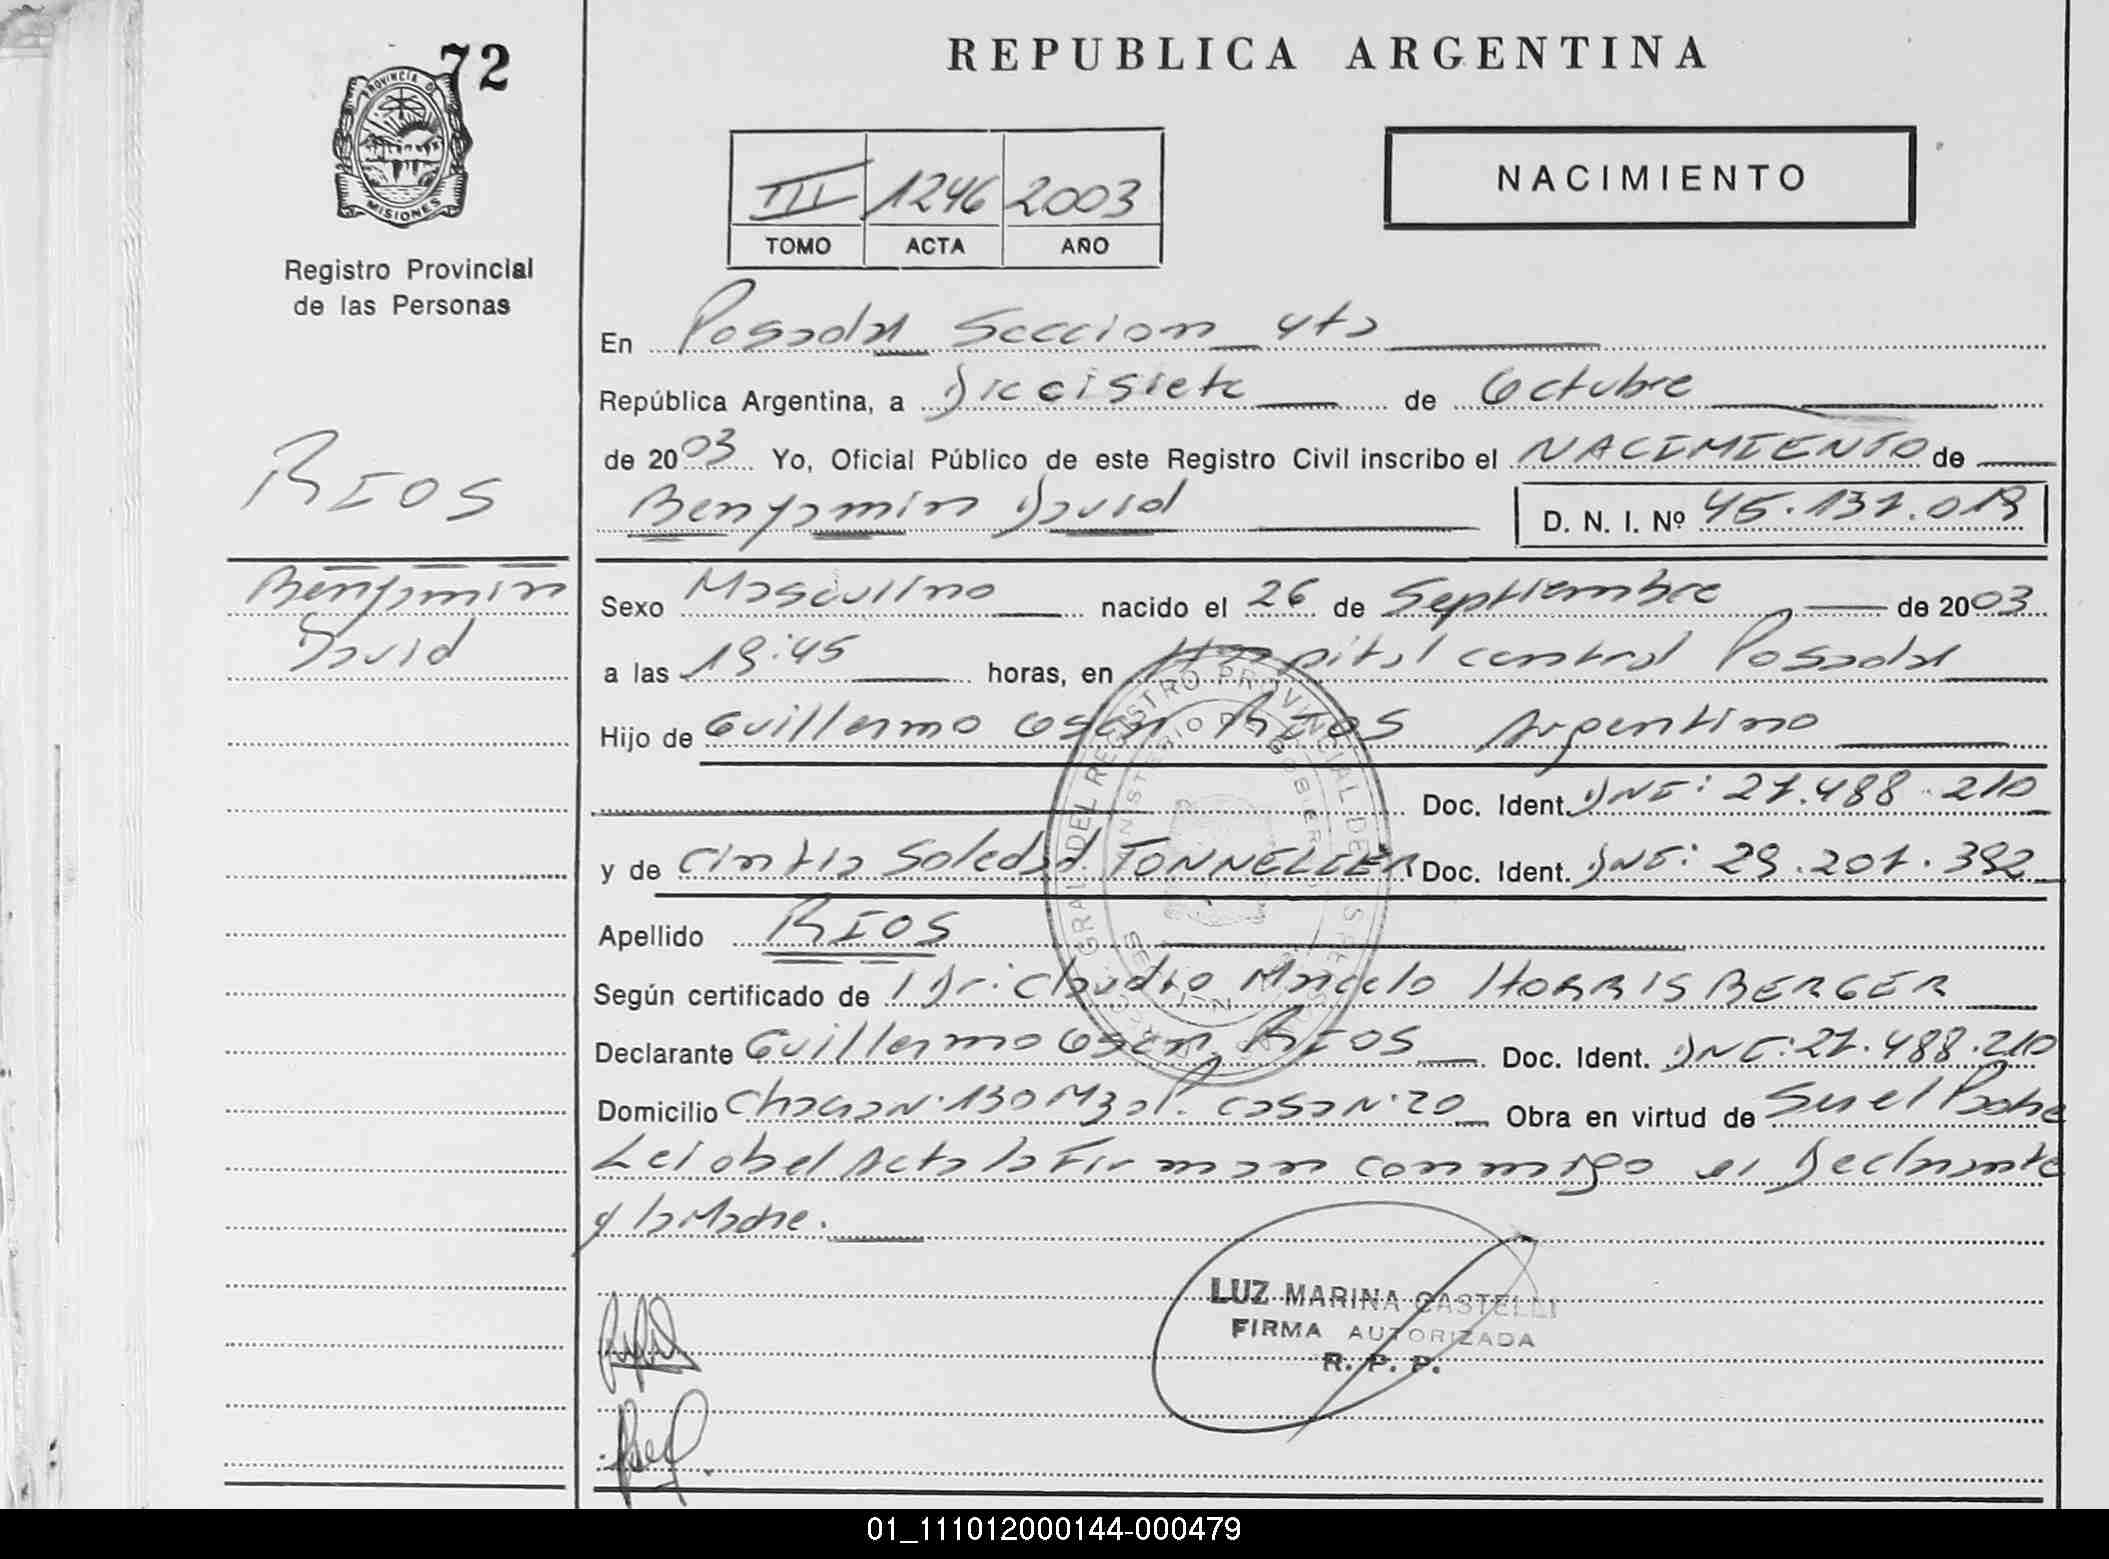 72
REPUBLICA ARGENTINA
PROVINCIA DE
MISIONES
Registro Provincial
de las Personas
III 1246 2003
TOMO ACTA AÑO
NACIMIENTO
En Posadas Seccion 4ta
República Argentina, a Diecisiete de Octubre
de 2003 Yo, Oficial Público de este Registro Civil inscribo el NACIMIENTO de
Benjamin David D. N. I. Nº 45.137.019
RIOS
Benjamin
David
Sexo Masculino nacido el 26 de Septiembre de 2003
a las 19:45 horas, en Hospital central Posadas
Hijo de Guillermo Oscar RIOS Argentino
Doc. Ident. DNI: 27.488.210
y de Cintia Soledad TONNELIER Doc. Ident. DNI: 29.207.392
Apellido RIOS
Según certificado de Dr. Claudio Marcelo HORRISBERGER
Declarante Guillermo Oscar RIOS Doc. Ident. DNI: 27.488.210
Domicilio Chacra N. 130 Mza casa N. 20 Obra en virtud de Ser el Padre
Leida el Acta la Firman conmigo el Declarante
y la Madre.
LUZ MARINA CASTELLI
FIRMA AUTORIZADA
R. P. P.
01_111012000144-000479